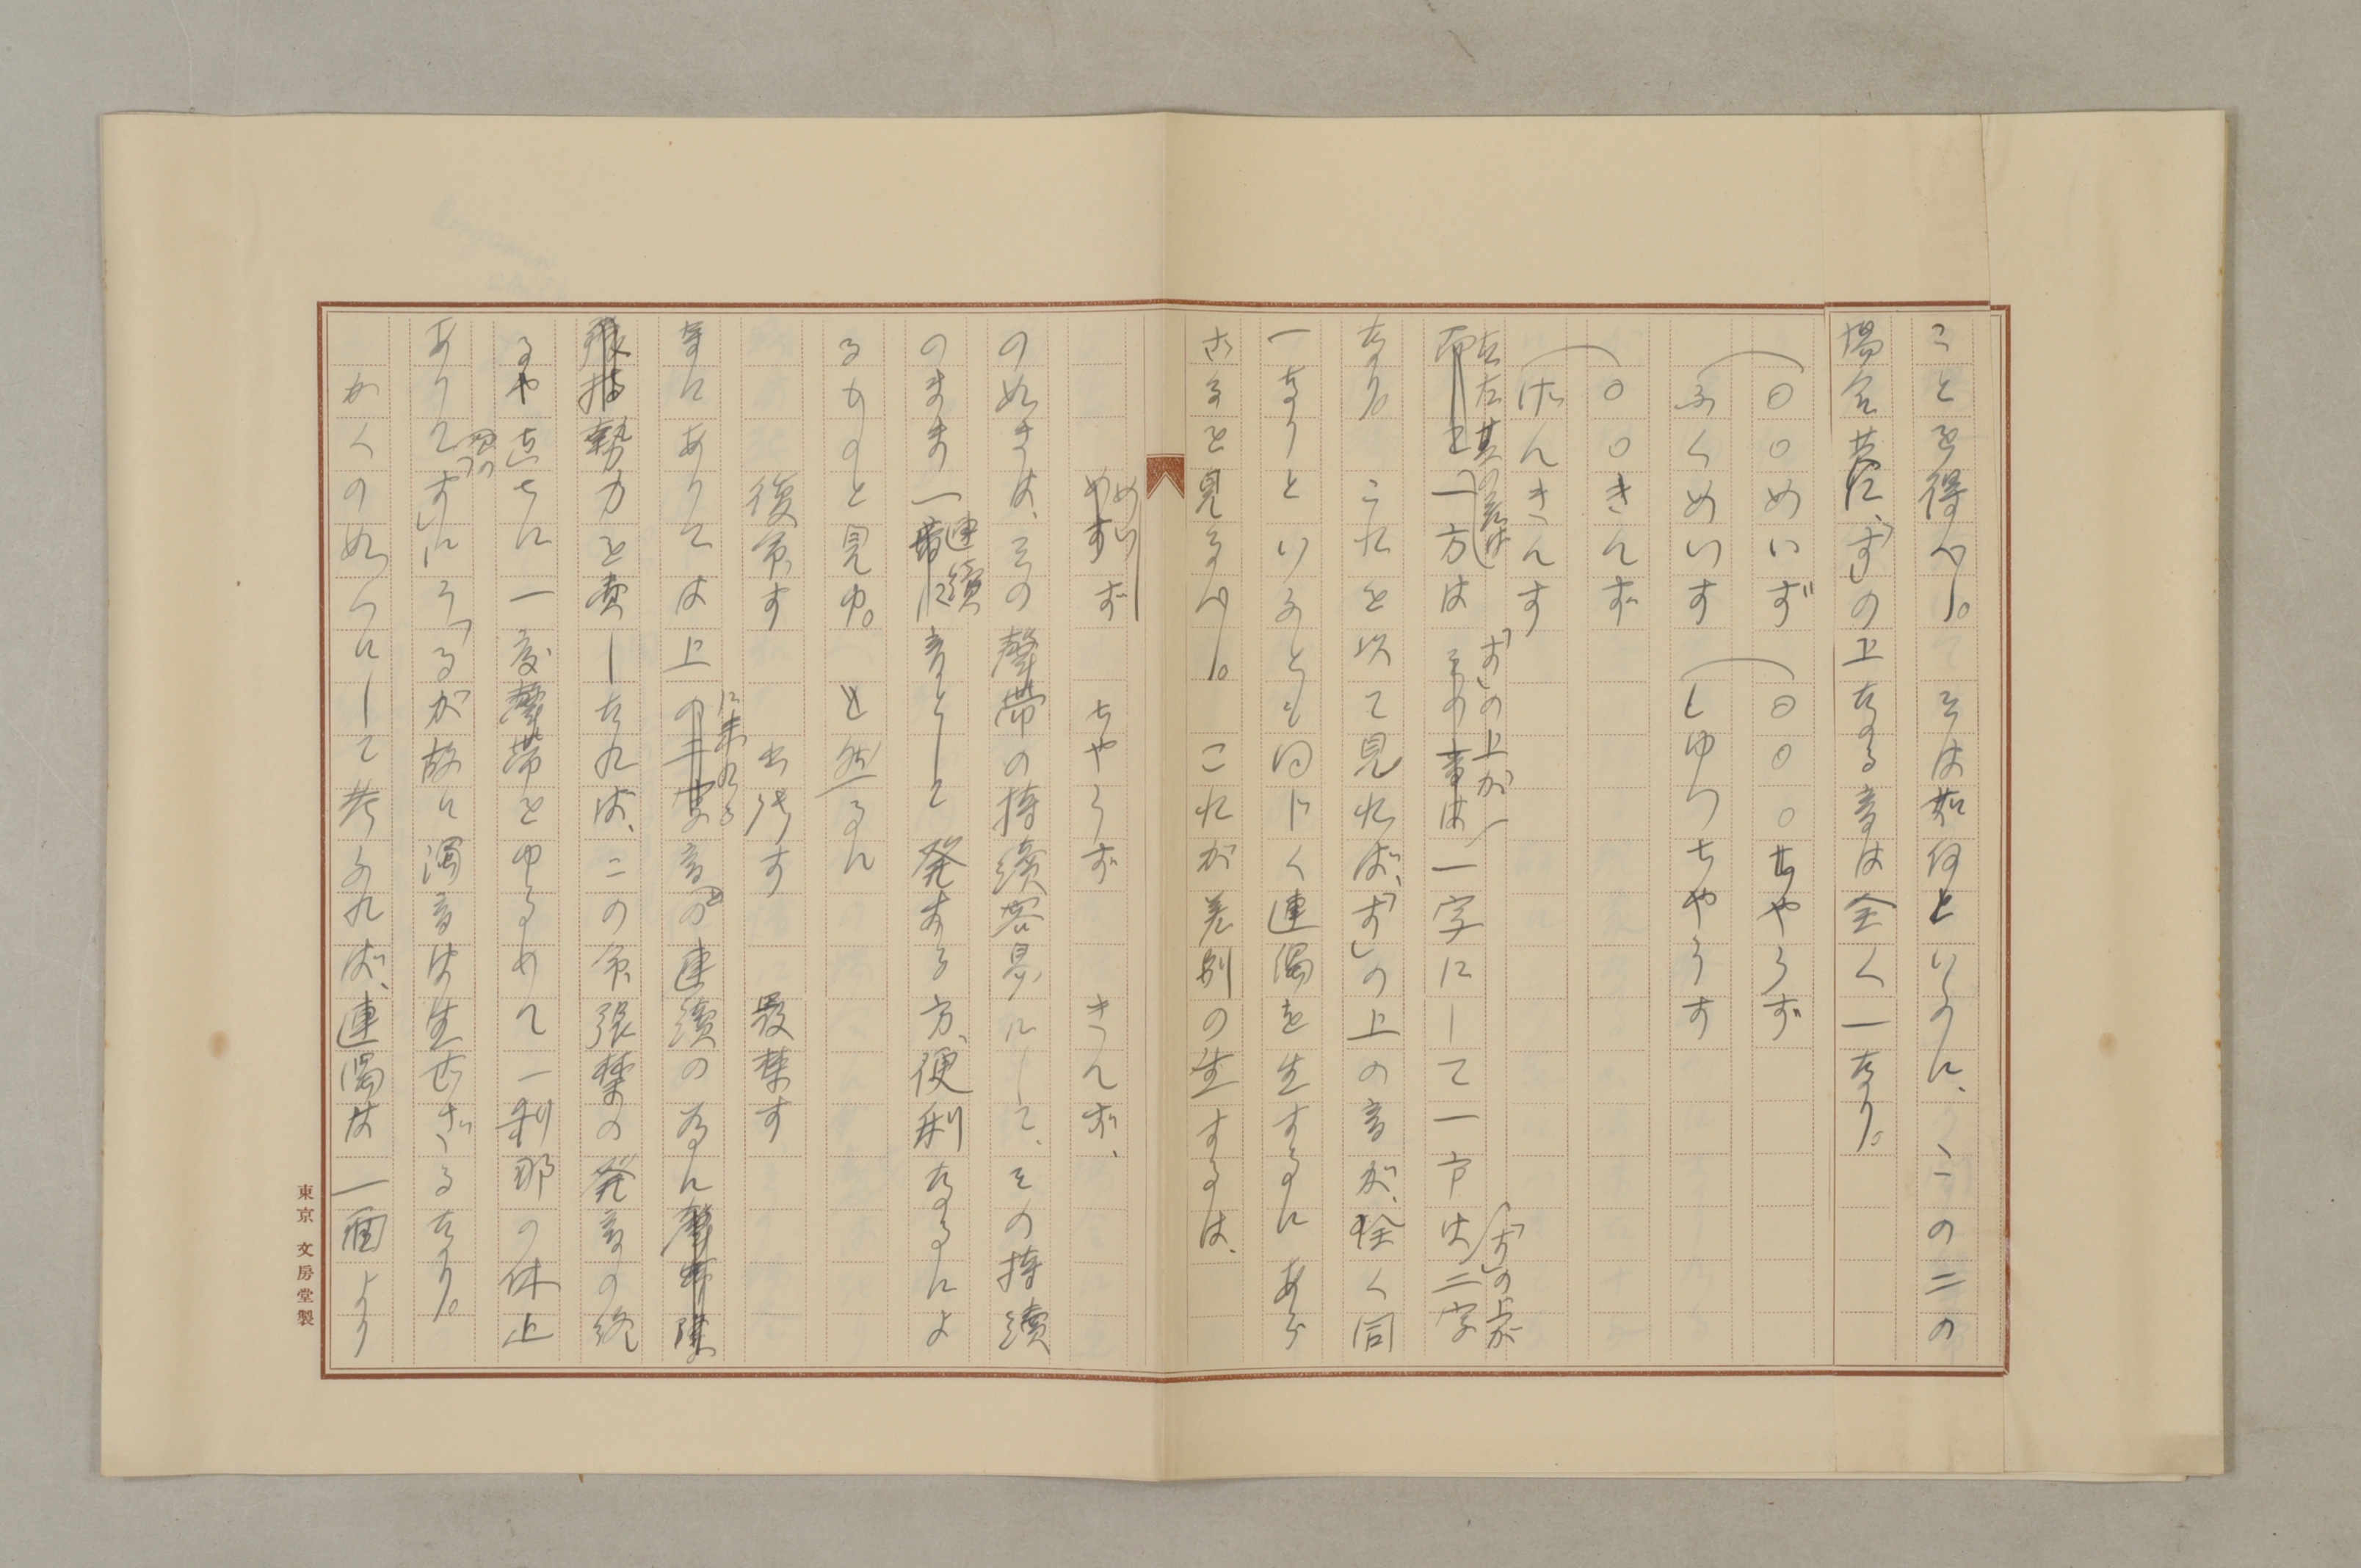 ことを得べし。そは如何といふに、この二の
場合共に、「す」の上なる音は全く一なり。
〇〇めいず
ふくめいす
〇〇〇ちやうず
しゆつちやうす
〇〇きんず
げんきんす
一方は「す」の上が一字にして一方は「す」の上が二字
なり。これを以て見れば、「す」の上の音が、全く同
一なりといふとも同じく連濁を生ずるにあらざ
るを見るべし。これが差別の生ずるは、
めいず ちやうず きんず、
の如きは、その聲帯の持續容易にして、その持續
のまま連續音として発する方、便利なるによ
るものと見ゆ。然るに
復命す 出張す 厳禁す
等にありては上に来れる音の連續の為に
勢力を費したれば、この命張禁の発音の終
るや直ちに一度聲帯をゆるめて一刹那の休止
ありて「す」にうつるが故に濁音は生ぜざるなり。
かくの如くにして考ふれば、連濁は一面より
東京 文房堂製